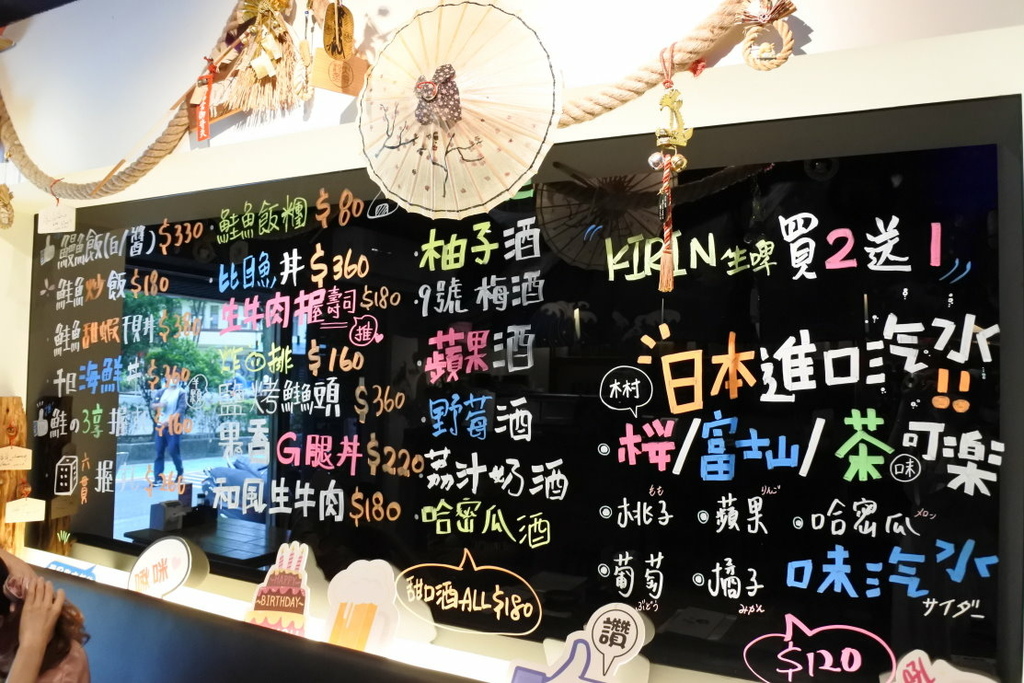 鰻魚飯(白/醬)$330
鮭魚炒飯$180
鮭魚甜蝦干貝丼
海鮮
鮭の3享握$160
六貫握$260
·鮭魚飯糰$80
·比目魚丼$360
生牛肉握壽司$180
推
排$160
鹽烤鮭魚頭$360
黑香G腿丼$220
和風生牛肉$180
·柚子酒
·9號梅酒
·蘋果酒
·野莓酒
·荔汁奶酒
·哈密瓜酒
甜口酒-ALL$180
KIRIN生啤買2送1
日本進口汽水!!
木村
桜/富士山/茶可樂
味
桃子 もも
蘋果 りんご
哈密瓜 メロン
葡萄 ぶどう
橘子 みかん
味汽水
サイダー
$120
HAPPY
~BIRTHDAY~
讚